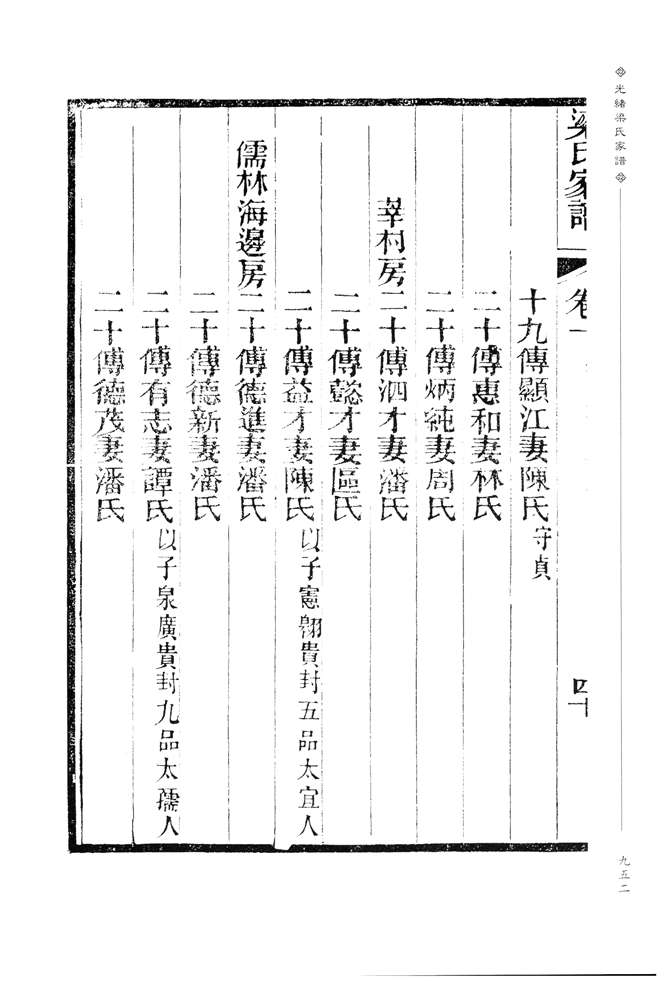 光緒梁氏家譜
梁氏家譜 卷一 四十
十九傳顯江妻陳氏守貞
二十傳惠和妻林氏
二十傳炳純妻周氏
莘村房二十傳泗才妻潘氏
二十傳懿才妻區氏
二十傳益才妻陳氏以子憲翎貴封五品太宜人
儒林海邊房二十傳德進妻潘氏
二十傳德新妻潘氏
二十傳有志妻譚氏以子泉廣貴封九品太孺人
二十傳德茂妻潘氏
九五二